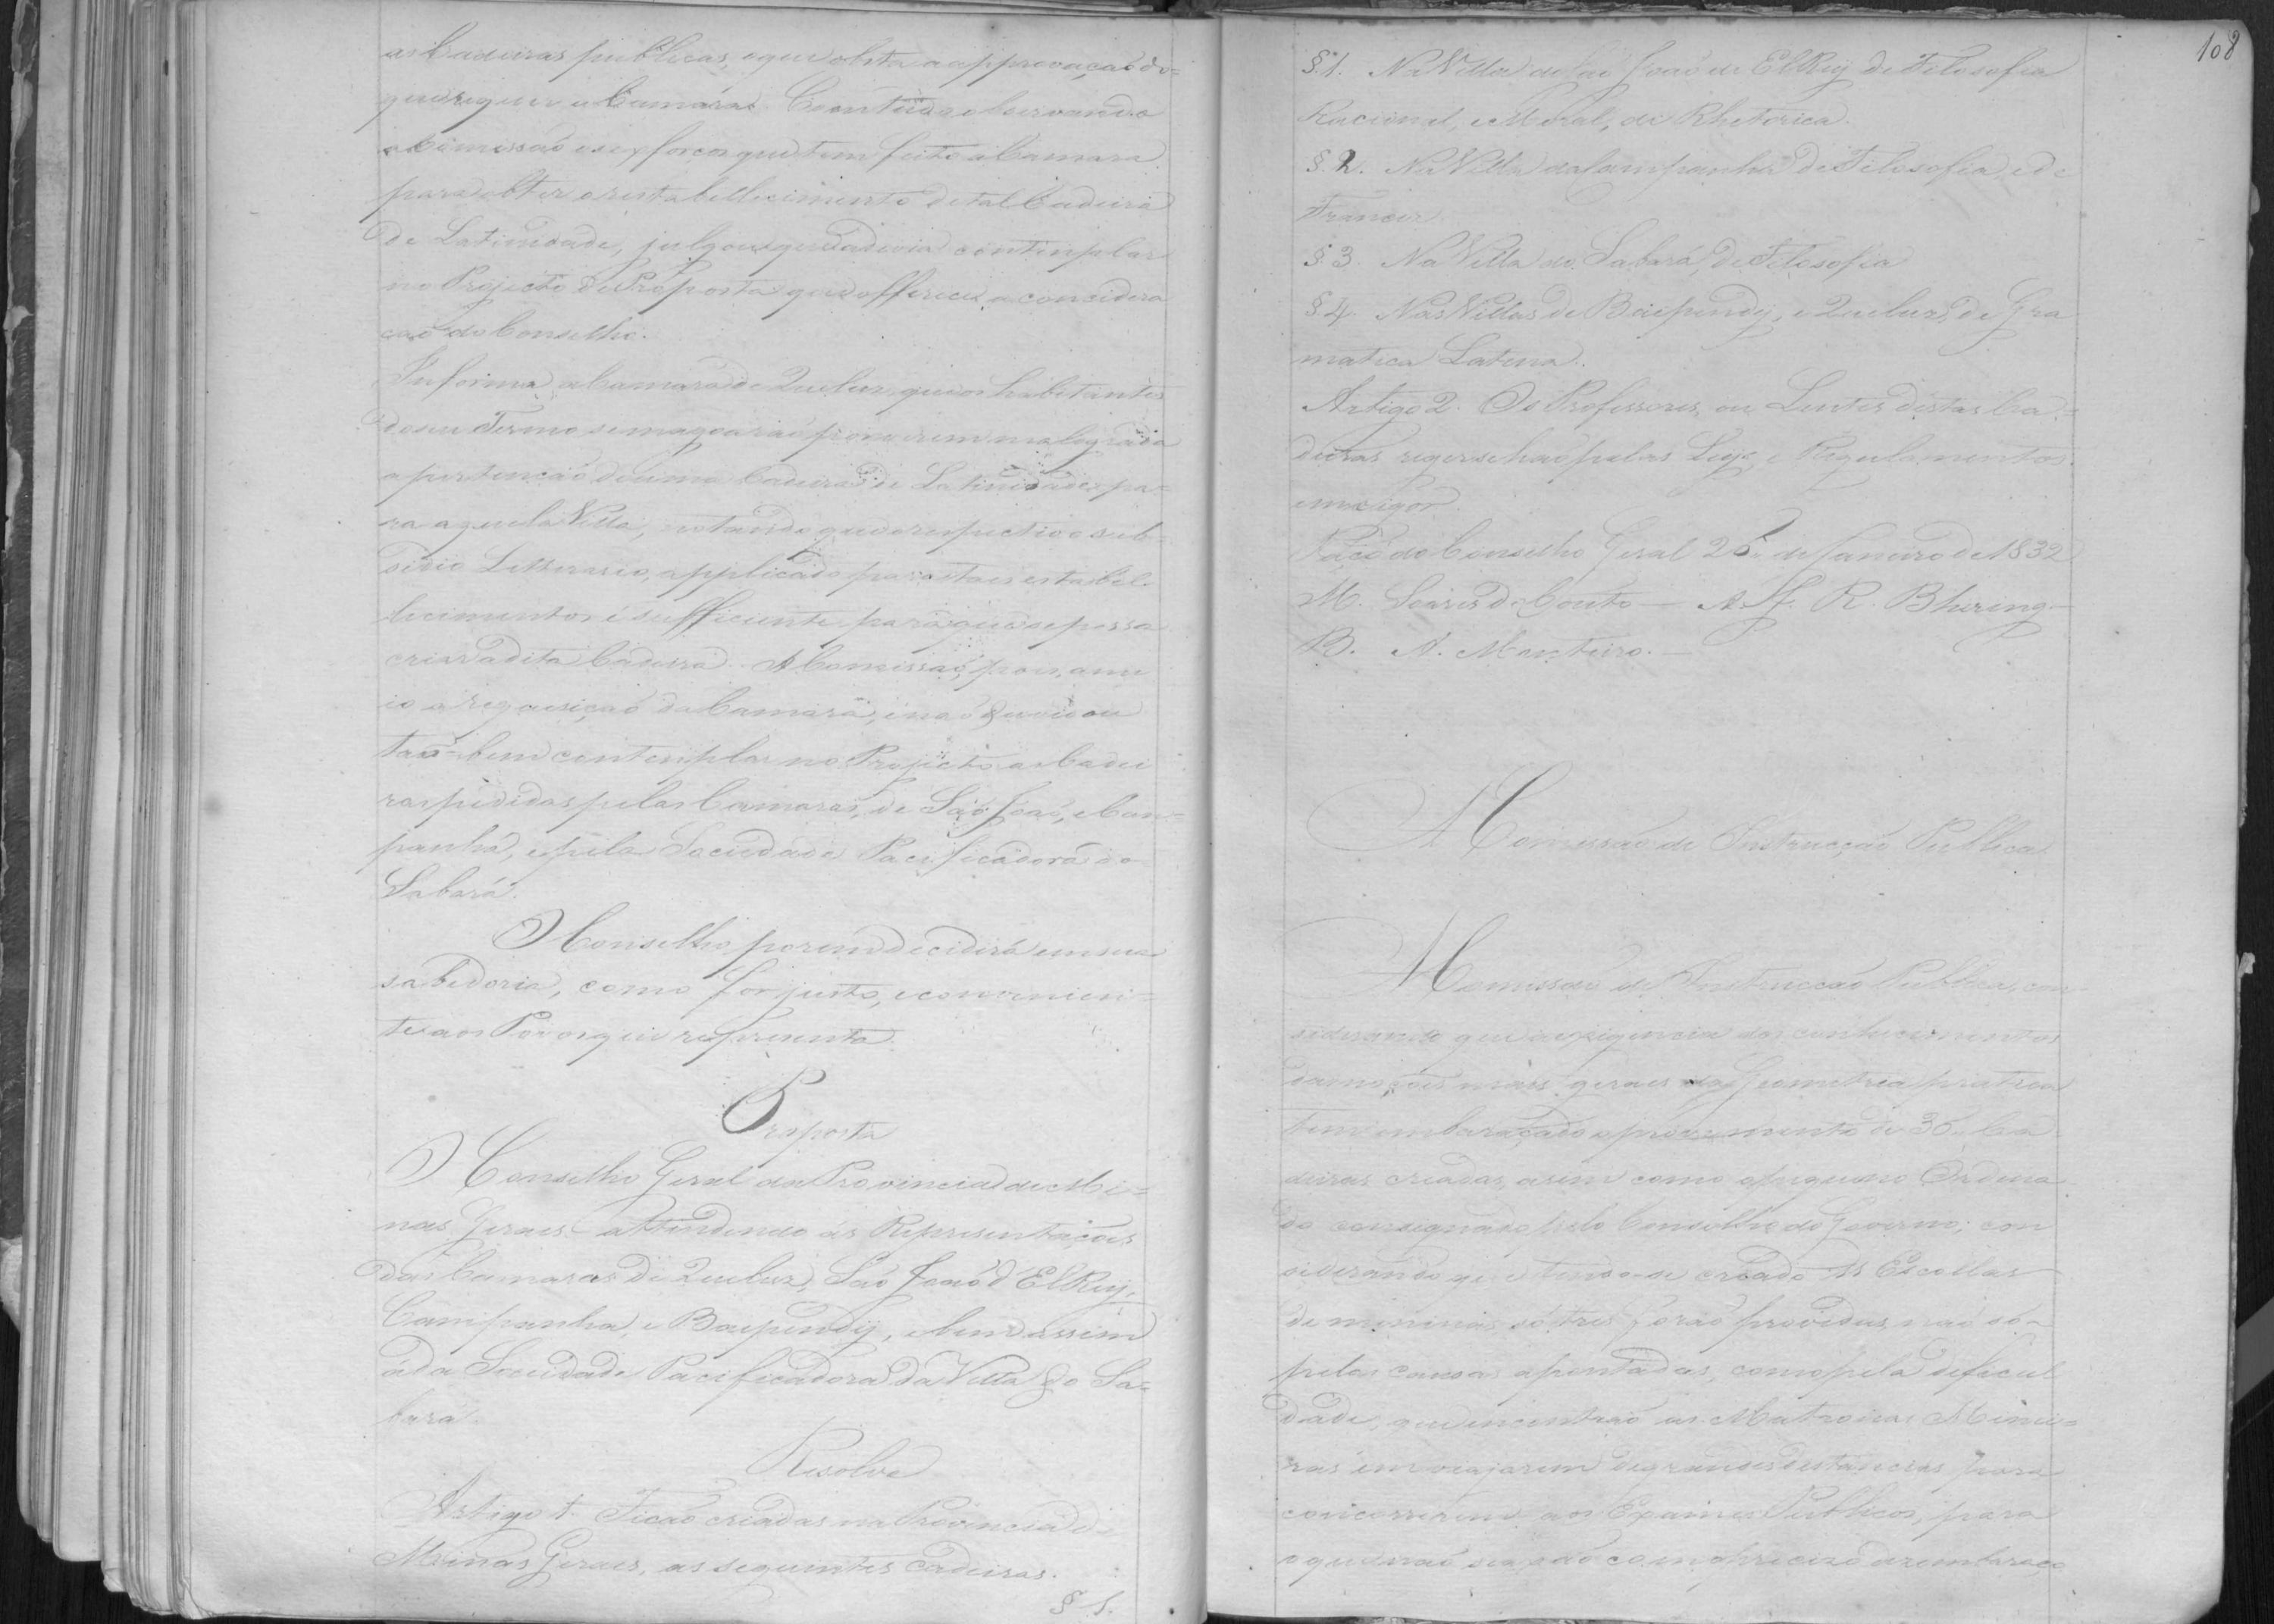 as Cadeiras publicas, o que obsta a approvação do=
que requer a Camara. Comtudo observando
a Comissaõ os exforcos que tem feito a Camara
para obter o restabellecimento de tal Cadeira
de Latinidade, julgou que a devia contemplar
no Projecto de Proposta que offerece a concidera
çaõ do Conselho.
Informa a Camara de Queluz, que os habitantes
do seu Termo se magoaraõ por verem malograda
a pertençaõ de uma Cadeira de Latinidade pa=
ra aquela Villa, notando que o respectivo sub-
sidio Litterario, applicado para taes estabel-
lecimentos é sufficiente para que se possa
criar a dita Cadeira. A Comissaõ, pois, anu
io a requisiçaõ da Camara, e naõ deixou
taõ-bem contemplar no Projecto as Cadei
ras pedidas pelas Camaras, de Saõ Joaõ, e Cam=
panha, e pela Sociedade Pacificadora do
Sabará.
O Conselho porem decidirá em sua
sabedoria, como for justo, e convenien=
te aos Povos que representa.
Proposta
O Conselho Geral da Provincia de Mi=
nas Geraes attendendo ás Representaçoẽs
das Camaras de Queluz, Saõ Joaõ d'ElRey,
Campanha, e Baependÿ, e bem assim
á da Sociedade Pacificadora da Villa do Sa=
bará.
Resolve
Artigo 1. Ficaõ criadas na Provincia de
Minas Geraes, as seguintes cadeiras.
§ 1.
108
§. 1. Na Villa de Saõ Joaõ de ElRey de Filosofia
Racional, e Moral, de Rhetorica.
§. 2. Na Villa da Campanha de Filosofia, e de
Francez.
§. 3. Na Villa do Sabará, de Filosofia
§ 4. Nas Villas de Baependy, e Queluz, de Gra
matica Latina.
Artigo 2. Os Professores, ou Lentes destas Ca=
deiras regerseháõ pelas Leys, e Regulamentos
em vigor.
Paço do Conselho Geral 25 de Janeiro de 1832
M. Soares do Couto — A. J. R. Bhering —
B. A. Monteiro. —
A Comissaõ de Instrucçaõ Publica
A Comissaõ de Instrucçaõ Publica, con
siderando que a exigencia dos conhecimentos
das noçoẽs mais geraes da Geometria pratica
tem embaraçado o provimento de 36 Ca
deiras creadas, asim como o pequeno Ordena
do consignado pelo Conselho do Governo; con
siderando que tendo-se creado Escollas
de meninas só tres foraõ providas, naõ só
pelas causas apontadas, como pela deficul
dade, que encontraõ as Matronas Minei=
ras em viajarem de grandes distancias para
concorrerem aos Exames Publicos, para
o que naõ com o precizo dezembaraço